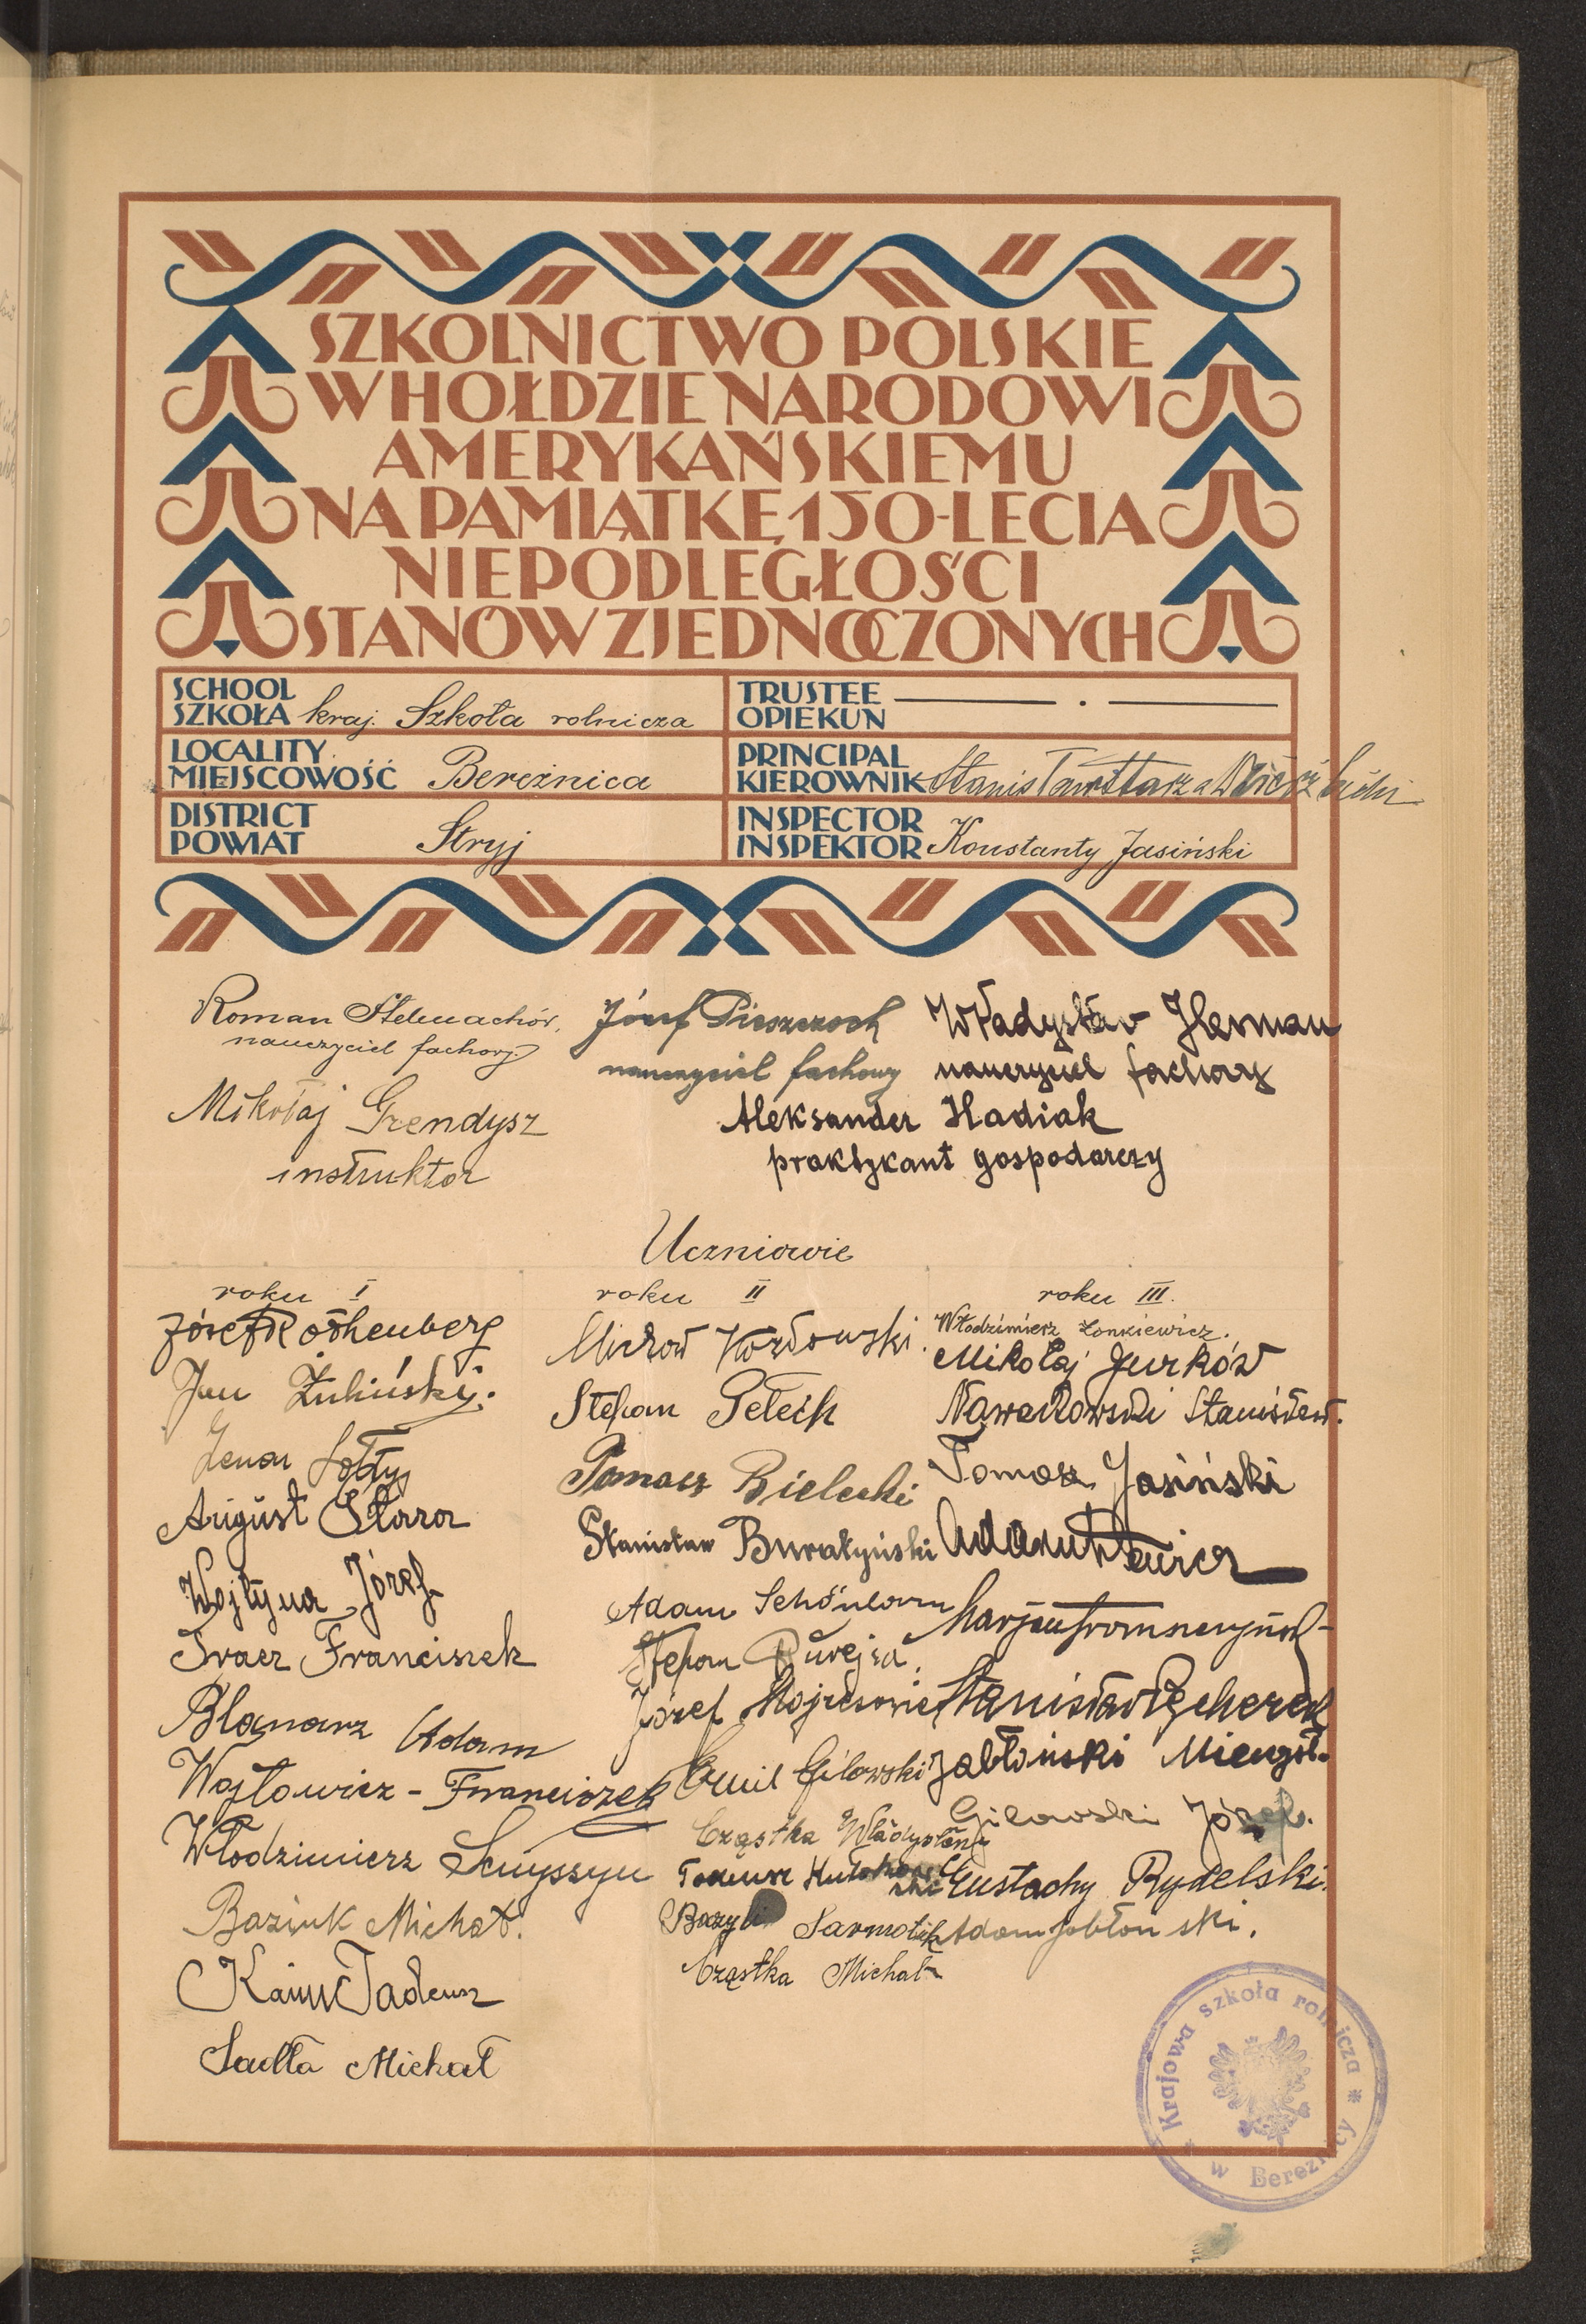 SZKOLNICTWO POLSKIE
W HOŁDZIE NARODOWI
AMERYKAŃSKIEMU
NA PAMIĄTKĘ 150-LECIA
NIEPODLEGŁOŚCI
STANÓW ZJEDNOCZONYCH
SCHOOL
SZKOŁA kraj. Szkoła rolnicza
TRUSTEE
OPIEKUN
LOCALITY
MIEJSCOWOŚĆ Bereźnica
PRINCIPAL
KIEROWNIK Stanisław
DISTRICT
POWIAT Stryj
INSPECTOR
INSPEKTOR Konstanty Jasiński
Roman Stelmachów,
nauczyciel fachowy
Józef Pieszczoch
nauczyciel fachowy
Władysław Herman
nauczyciel fachowy
Mikołaj Grendysz
instruktor
Aleksander Hadiak
praktykant gospodarczy
Uczniowie
roku I
Józef Rothenberg
Jan Żuliński.
Zenon
August Stara
Wojtyna Józef
Tracz Franciszek
Blanarz Adam
Wojtowicz - Franciszek
Włodzimierz
Baziuk Michał.
Kaim Tadeusz
Sadła Michał
roku II
Kozłowski.
Stefan Petech
Tomasz Bielecki
Stanisław Buratyński
Adam Schönborn
Stefan
Józef
Emil Gilowski
Cząstka Władysław
Tadeusz
Bazyli Sarmatik
Cząstka Michał
roku III.
Włodzimierz Łonkiewicz.
Mikołaj Jurków
Nawarowski Stanisław.
Tomasz Jasiński
Adam
Marjan
Stanisław
Jabłoński Mieczysł.
Gilowski Józef.
Eustachy Rydelski.
Adam Jabłoński.
Krajowa szkoła rolnicza * w Bereźnicy *